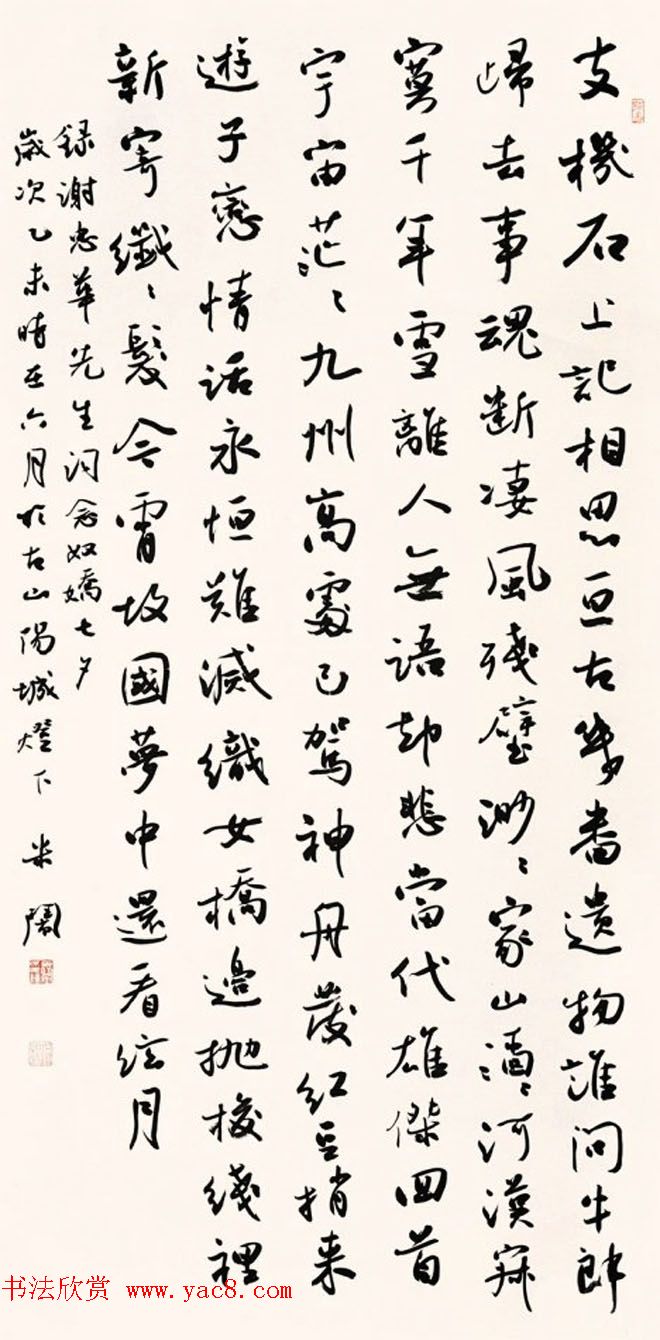 支機石上記相思亘古幾番遺物誰問牛郎
歸去事魂斷淒風殘壁渺〻家山〻河漢寂
寞千年雪離人無語却悲當代雄傑回首
宇宙茫〻九州高處已駕神舟發紅豆捎来
遊子戀情話永恒難滅織女橋邊拋梭綫裡
新寄纖〻髮今宵故國夢中還看絃月
録謝忠華先生詞念奴嬌七夕
歲次乙未時在六月於古山陽城燈下 米闊
书法欣赏 www.yac8.com